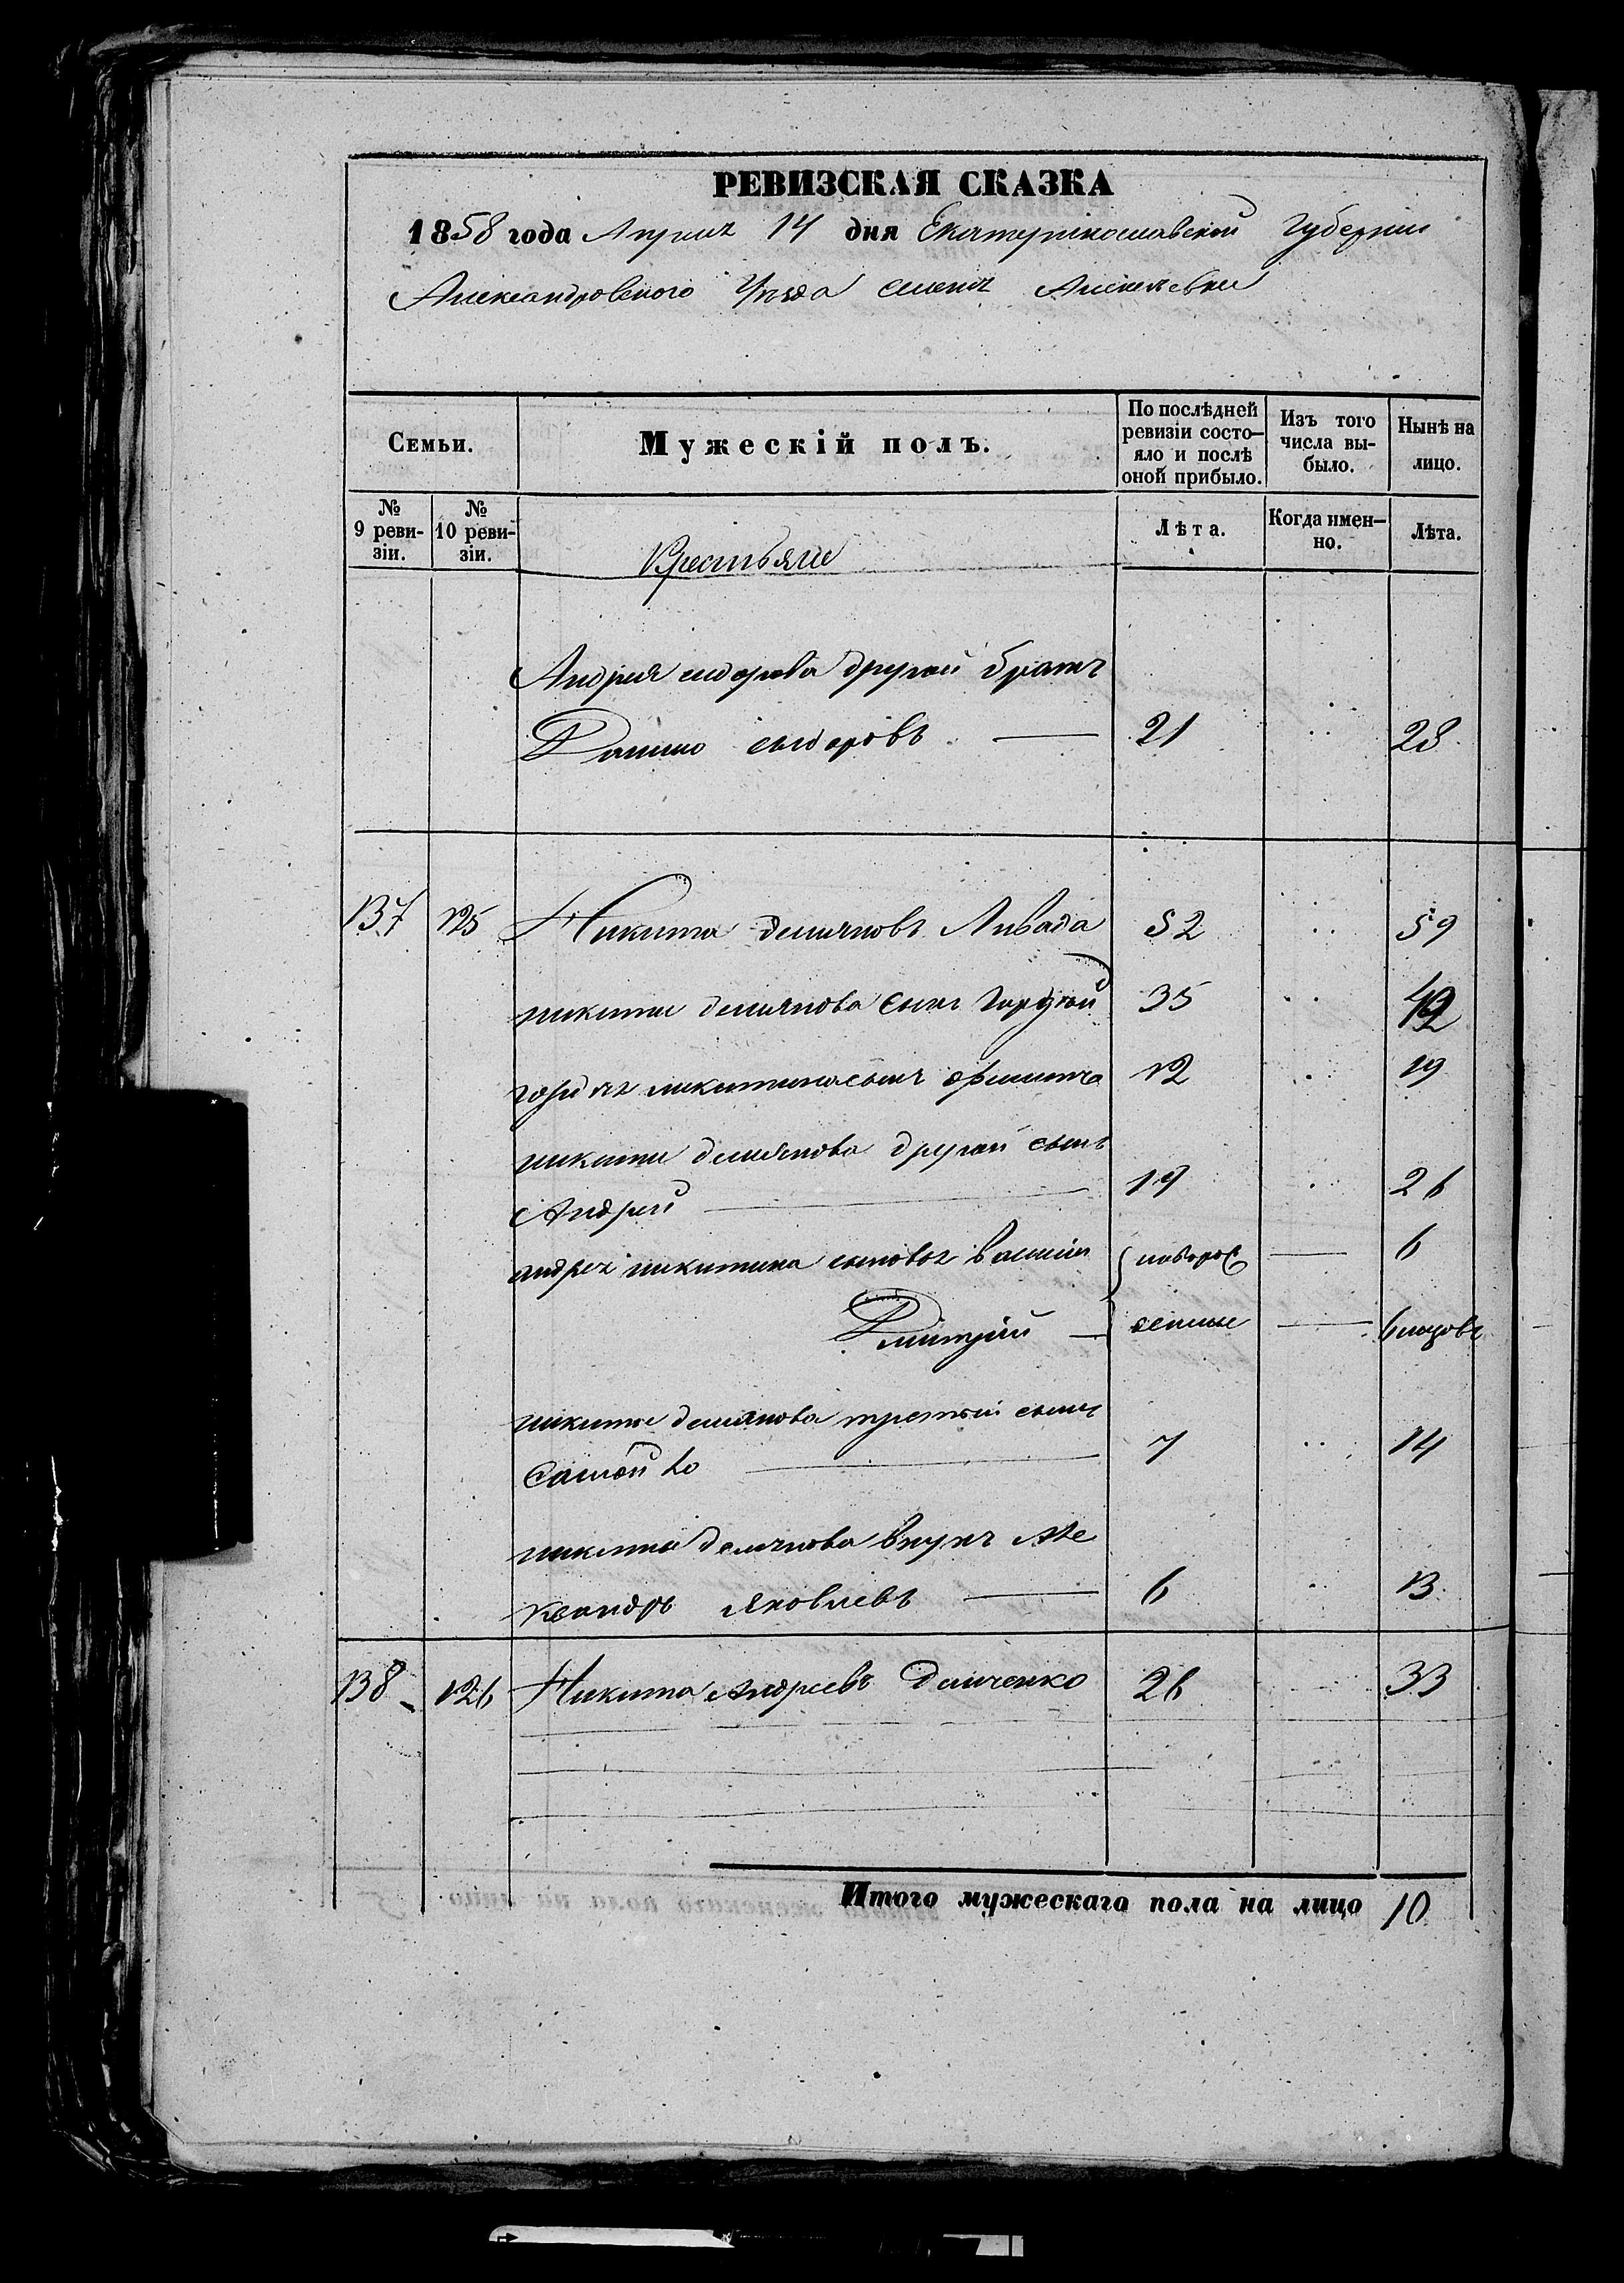 РЕВИЗСКАЯ СКАЗКА
1858 года Апреля 14 дня Екатеринославской Губернии
Александровского Уезда селения Алексеевки
Семьи.
Мужескій полъ.
По послѣдней ревизіи состо-яло и послѣ оной прибыло.
Изъ того числа вы-было.
Нынѣ на лицо.
№ 9 реви-зіи.
№ 10 реви-зіи.
Крестьяне
Лѣта.
Когда имен-но.
Лѣта.
Андрея сидорова другой братъ
Данило сидоровъ 21 28
137 125 Никита демяновъ Ливада 52 59
никиты демянова сынъ Гордѣй 35 42
гордѣя никитина сынъ 12 19
никиты демянова другой сынъ
Андрей 19 26
андрея никитина сыновья василий новорож 6
Дмитрий денные
никиты демянова третий сынъ
Самойло 7 14
никиты демянова внукъ Але
ксандръ Яковлевъ 6 13
138 126 Никита Андреевъ Демченко 26 33
Итого мужескаго пола на лицо 10